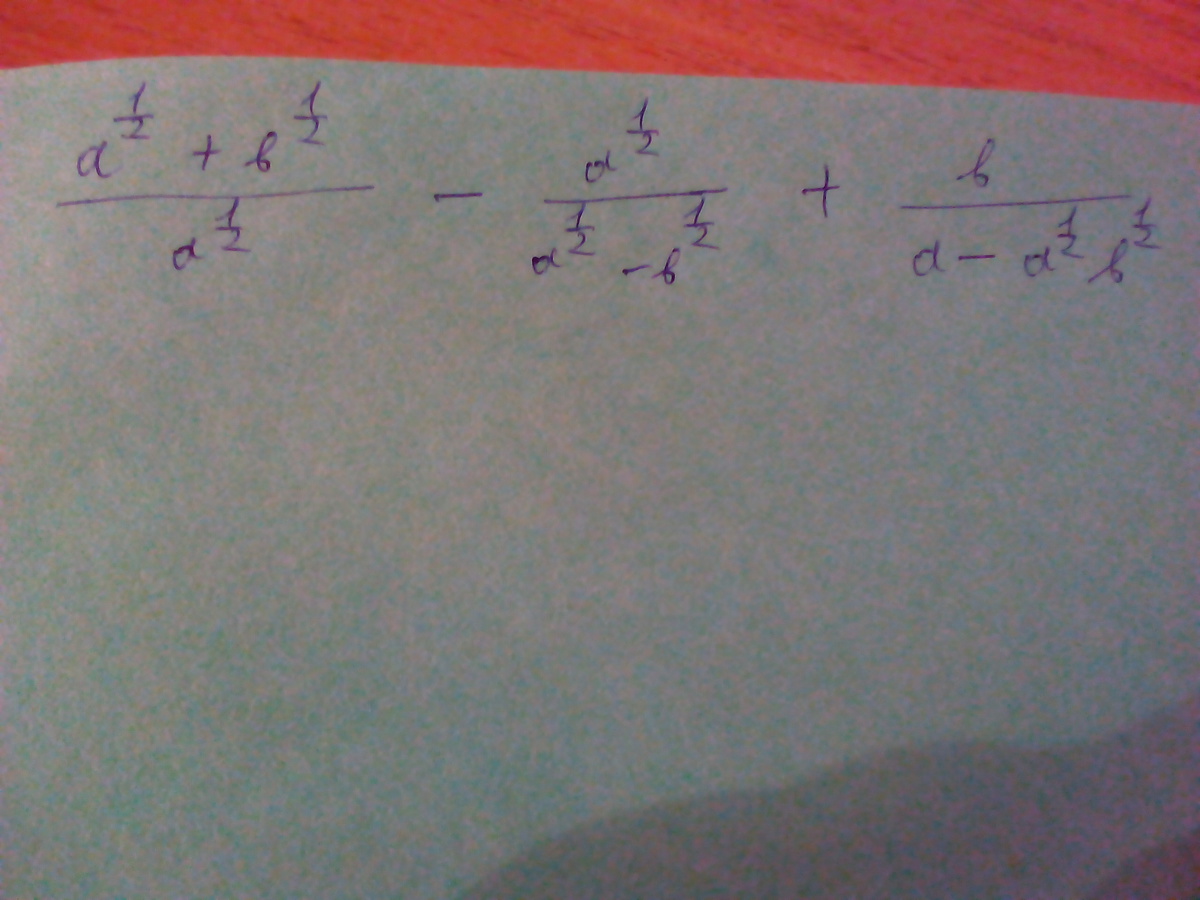 \frac{a^{\frac{1}{2}} + b^{\frac{1}{2}}}{a^{\frac{1}{2}}} - \frac{a^{\frac{1}{2}}}{a^{\frac{1}{2}} - b^{\frac{1}{2}}} + \frac{b}{a - a^{\frac{1}{2}} b^{\frac{1}{2}}}